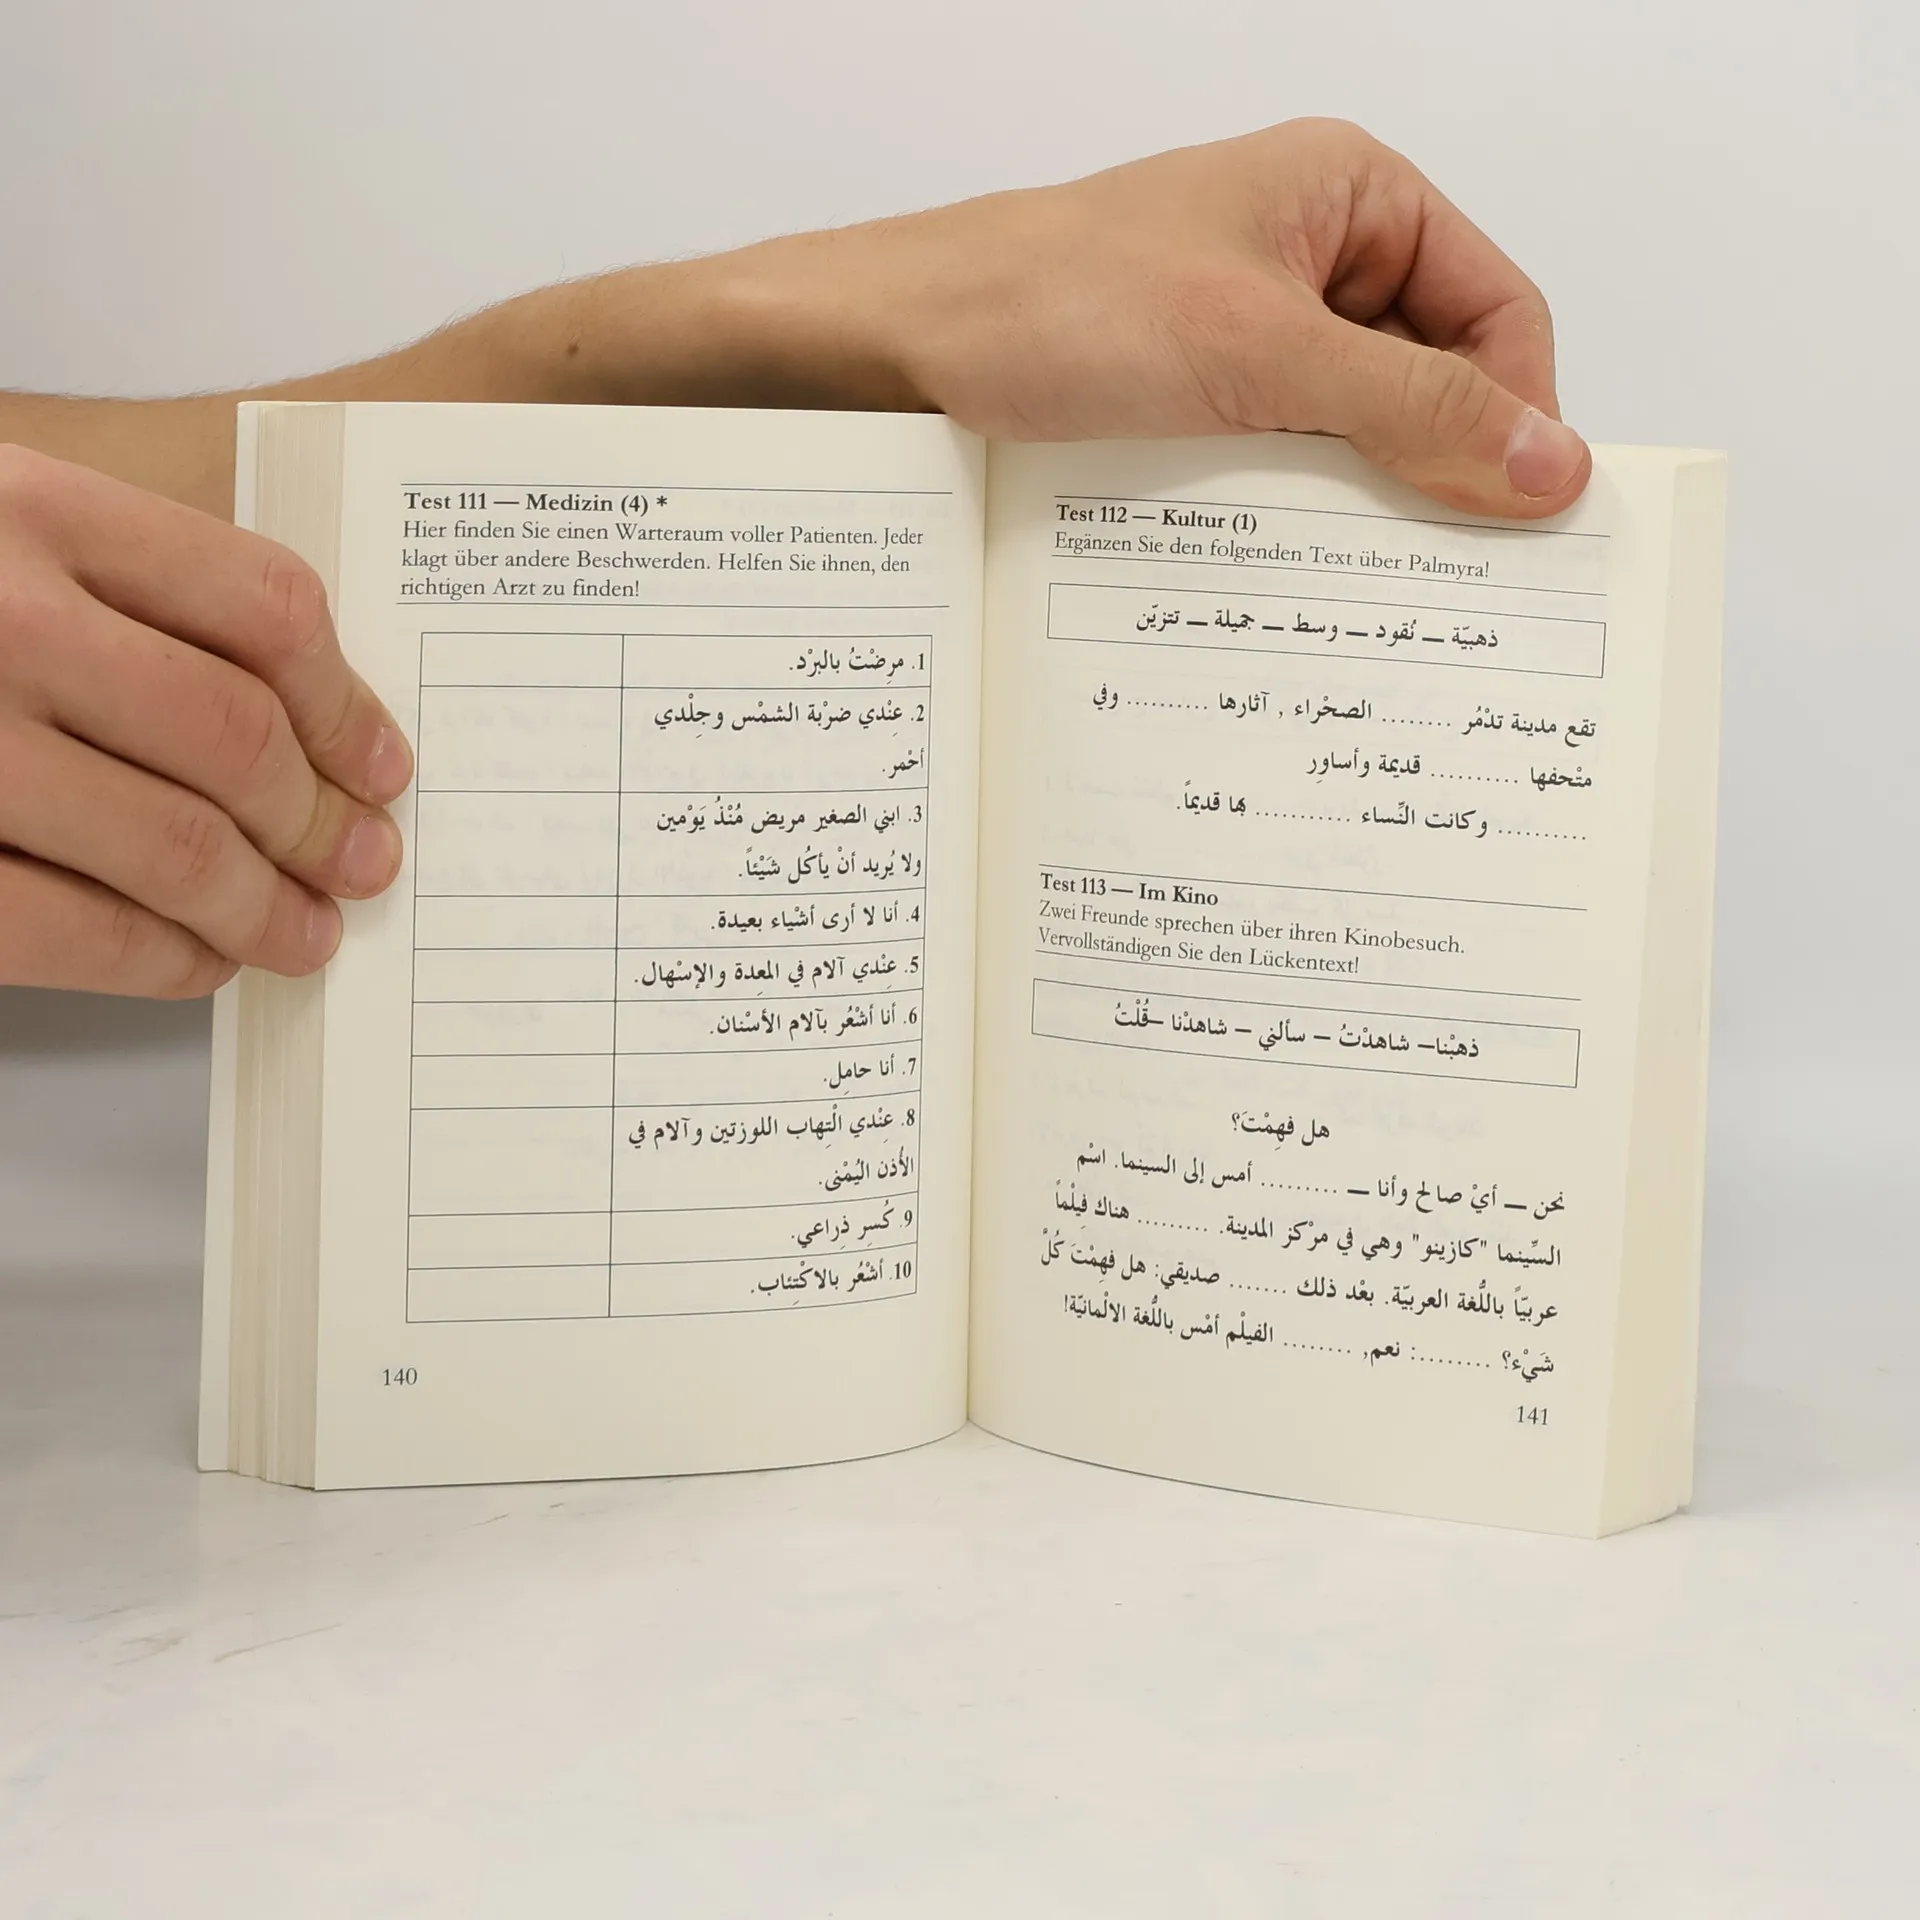 Test 111 — Medizin (4) *
Hier finden Sie einen Warteraum voller Patienten. Jeder
klagt über andere Beschwerden. Helfen Sie ihnen, den
richtigen Arzt zu finden!
1. مرِضْتُ بالبرْد.
2. عِنْدي ضرْبة الشمْس وجِلْدي
أحْمر.
3. ابني الصغير مريض مُنْذُ يَوْمين
ولا يُريد أنْ يأكُل شَيْئاً.
4. أنا لا أرى أشْياء بعيدة.
5. عِنْدي آلام في المعِدة والإسْهال.
6. أنا أشْعُر بآلام الأسْنان.
7. أنا حامِل.
8. عِنْدي الْتِهاب اللوزتين وآلام في
الأُذن اليُمْنى.
9. كُسِر ذِراعي.
10. أشْعُر بالاكْتِئاب.
140
Test 112 — Kultur (1)
Ergänzen Sie den folgenden Text über Palmyra!
ذهبيّة — نُقود — وسط — جميلة — تتزيّن
تقع مدينة تدْمُر ........ الصحْراء , آثارها .......... وفي
متْحفها .......... قديمة وأساوِر
.......... وكانت النِّساء ........... بها قديماً.
Test 113 — Im Kino
Zwei Freunde sprechen über ihren Kinobesuch.
Vervollständigen Sie den Lückentext!
ذهبْنا– شاهدْتُ – سألني – شاهدْنا –قُلْتُ
هل فهِمْتَ؟
نحن — أيْ صالح وأنا — ......... أمس إلى السينما. اسْم
السِّينما "كازينو" وهي في مرْكز المدينة. ......... هناك فِيلْماً
عربيّاً باللُّغة العربيّة. بعْد ذلك ....... صديقي: هل فهِمْتَ كُلّ
شَيْء؟ ........: نعم, ........ الفيلْم أمْس باللُّغة الالْمانيّة!
141